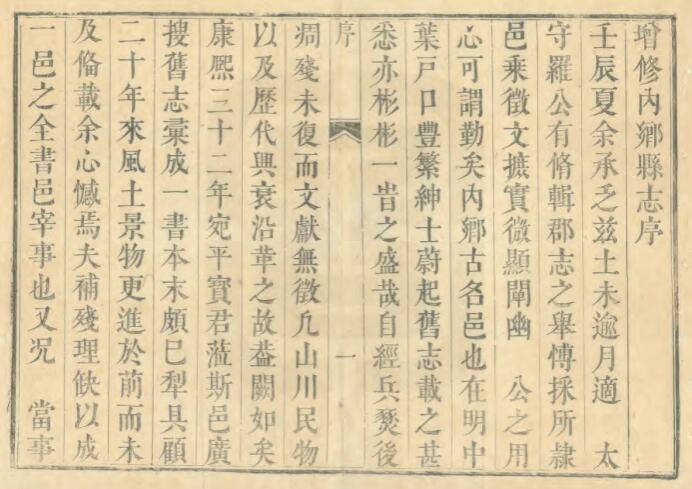 增修內鄉縣志序
壬辰夏余承乏茲土未逾月適　太
守羅公有脩輯郡志之舉愽採所隸
邑乘徵文摭實微顯闡幽　公之用
心可謂勤矣內鄉古名邑也在明中
葉戸口豐繁紳士蔚起舊志載之甚
悉亦彬彬一旹之盛哉自經兵燹後
序
一
凋殘未復而文獻無徵凢山川民物
以及歷代興衰沿革之故葢闕如矣
康熈三十二年宛平寳君蒞斯邑廣
搜舊志彙成一書本末頗巳犁具顧
二十年來風土景物更進於前而未
及俻載余心憾焉夫補殘理缺以成
一邑之全書邑宰事也又况　當事